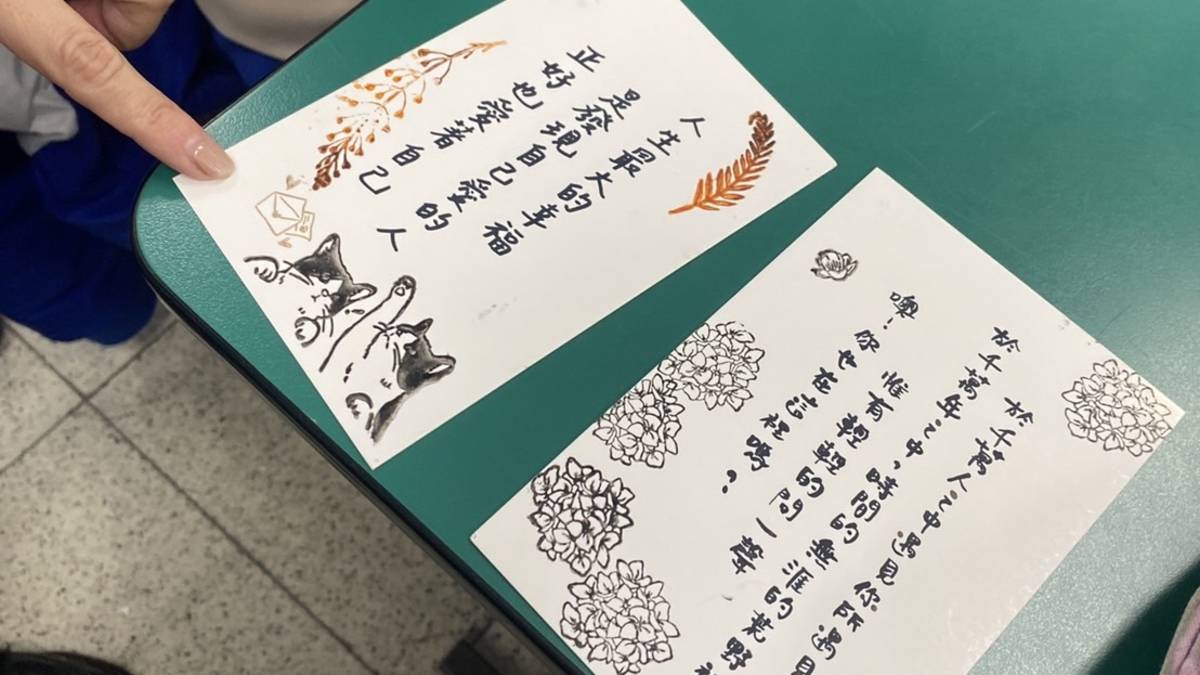 人生最大的幸福
是發現自己愛的人
正好也愛著自己
於千萬人之中遇見你所遇見
於千萬年之中,時間的無涯的荒野裡
惟有輕輕的問一聲
噢!你也在這裡嗎?